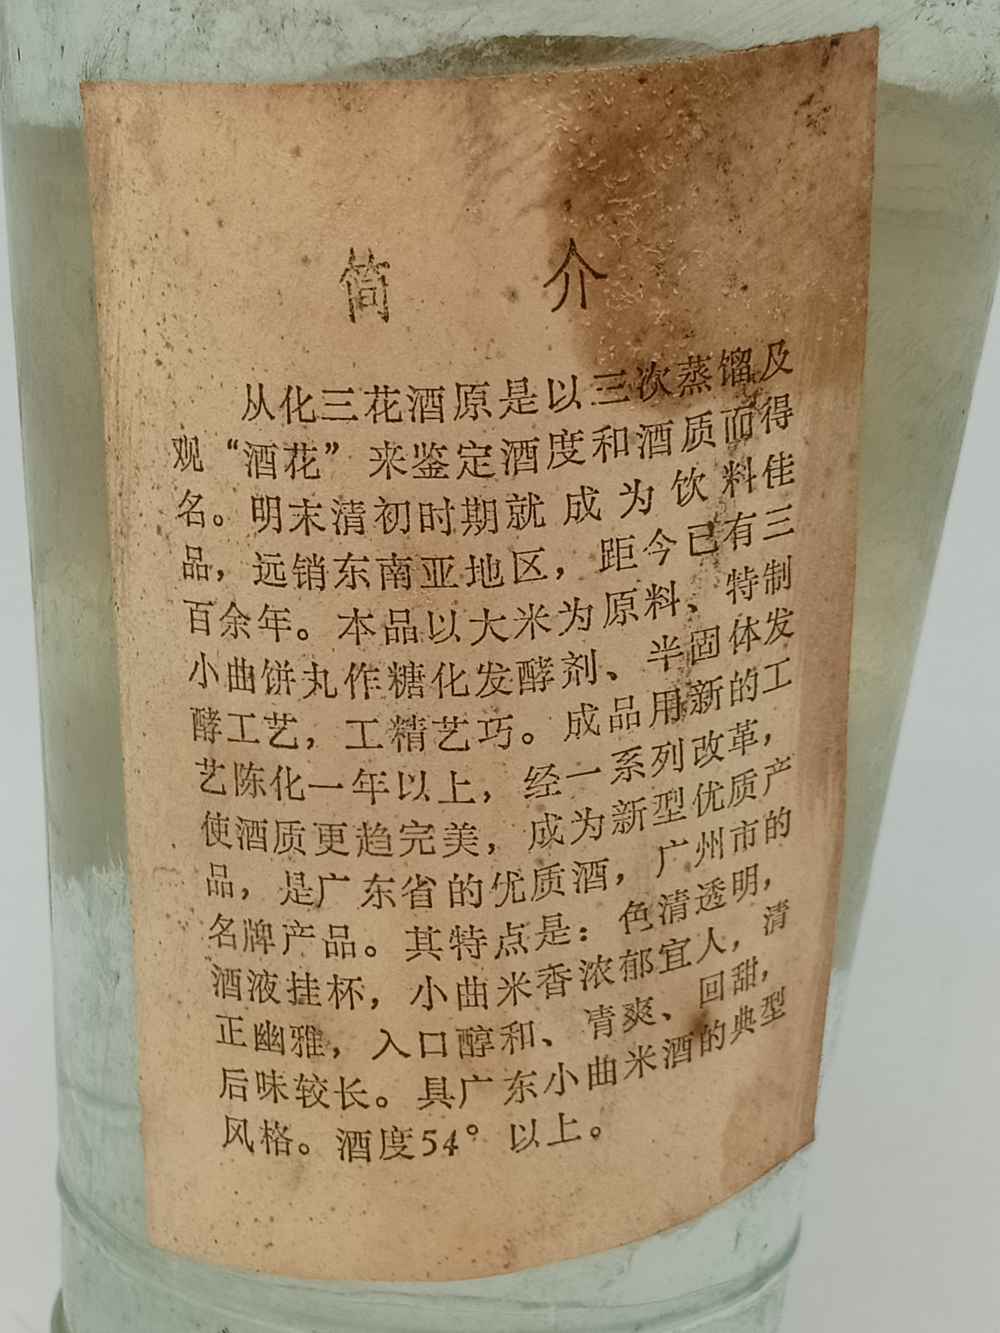 简 介
从化三花酒原是以三次蒸馏及
观“酒花”来鉴定酒度和酒质而得
名。明末清初时期就成为饮料佳
品，远销东南亚地区，距今已有三
百余年。本品以大米为原料、特制
小曲饼丸作糖化发酵剂、半固体发
酵工艺，工精艺巧。成品用新的工
艺陈化一年以上，经一系列改革，
使酒质更趋完美，成为新型优质产
品，是广东省的优质酒，广州市的
名牌产品。其特点是：色清透明，
酒液挂杯，小曲米香浓郁宜人，清
正幽雅，入口醇和、清爽、回甜，
后味较长。具广东小曲米酒的典型
风格。酒度54°以上。